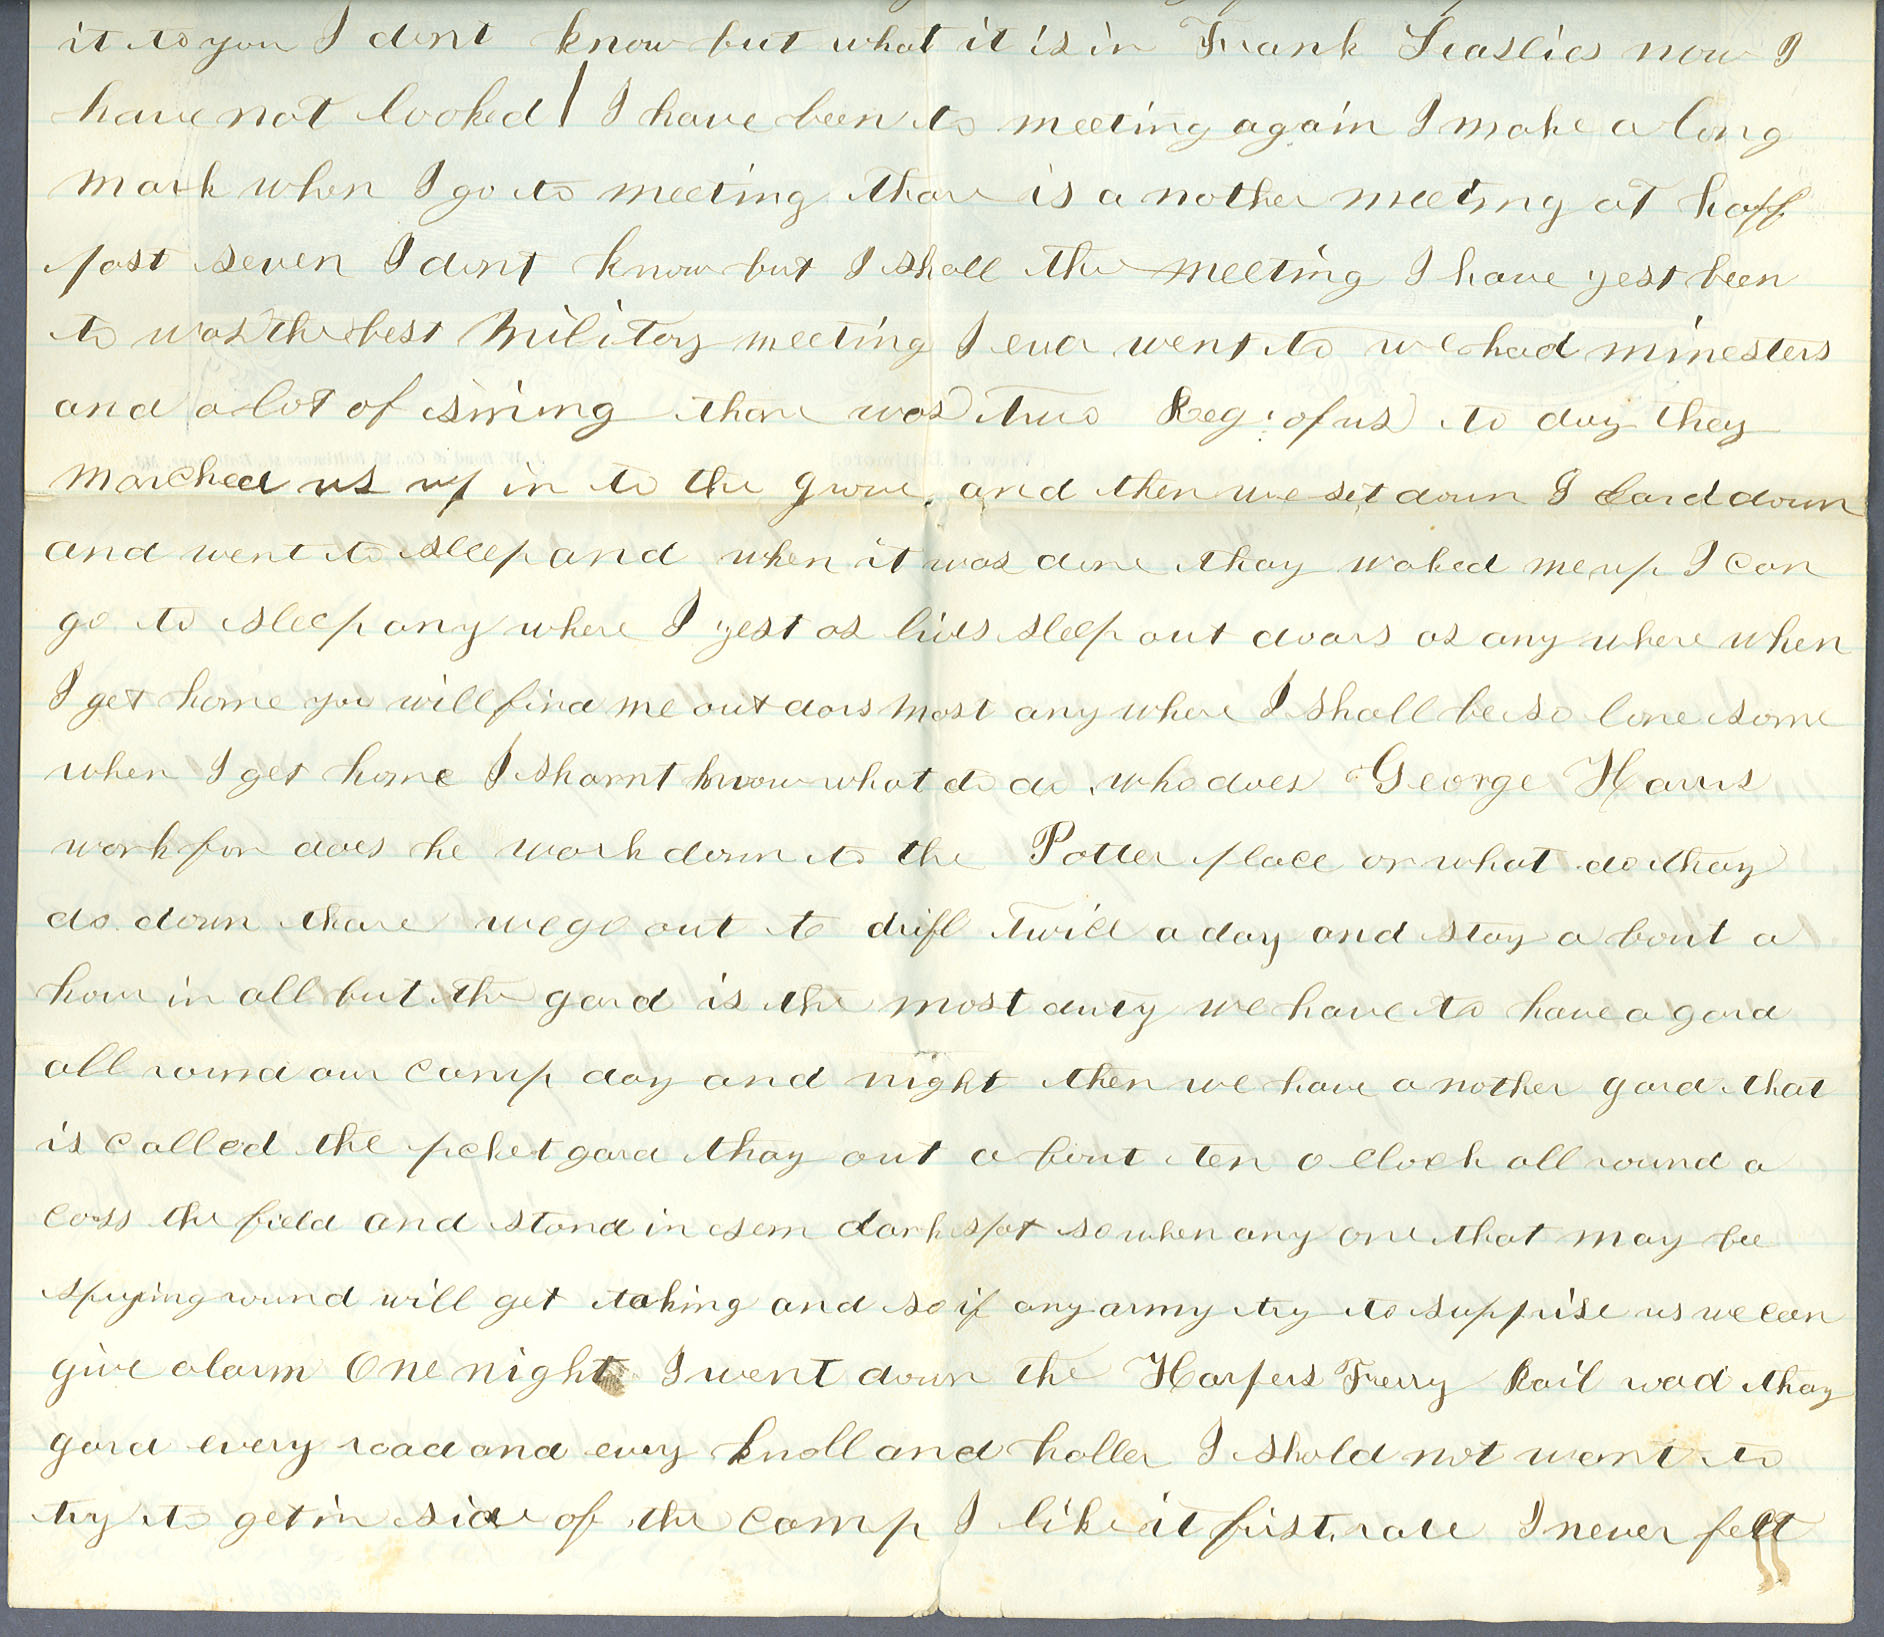 it to you I dont know but what it is in Frank Leaslies now I
have not looked | I have been to meeting again I make a long
mark when I go to meeting thare is a nother meeting at haff
past seven I dont know but I shall the meeting I have yest been
to was the best Military meeting I eva went to we had minesters
and a lot of sining thare was two Reg. of us to day they
marched us up in to the grove, and then we set down I lard down
and went to sleep and when it was done thay waked me up I can
go to sleep any where I yest as lives sleep out doars as any where when
I get home you will find me out dors most any where I shall be so lonesome
when I get home I sharnt know what to do, who does George Harris
work for does he work down to the Potter place or what do thay
do down thare we go out to drill twice a day and stay a bout a
hour in all but the gard is the most duty we have to have a gard
all round our camp day and night then we have a nother gard that
is called the pcket gard thay out a bout ten o clock all round a
coss the field and stand in sem dark spot so when any one that may be
spuying round will get taking and so if any army try to supprise us we can
give alarm One night I went down the Harpers Ferry Rail road thay
gard every road and evey knoll and holler I shold not want to
try to get in side of the camp I like it fust, rate I never felt